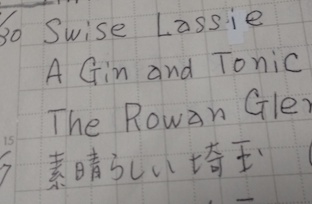 30 Swise Lassie
A Gin and Tonic
The Rowan Gler
15
素晴らしい埼玉